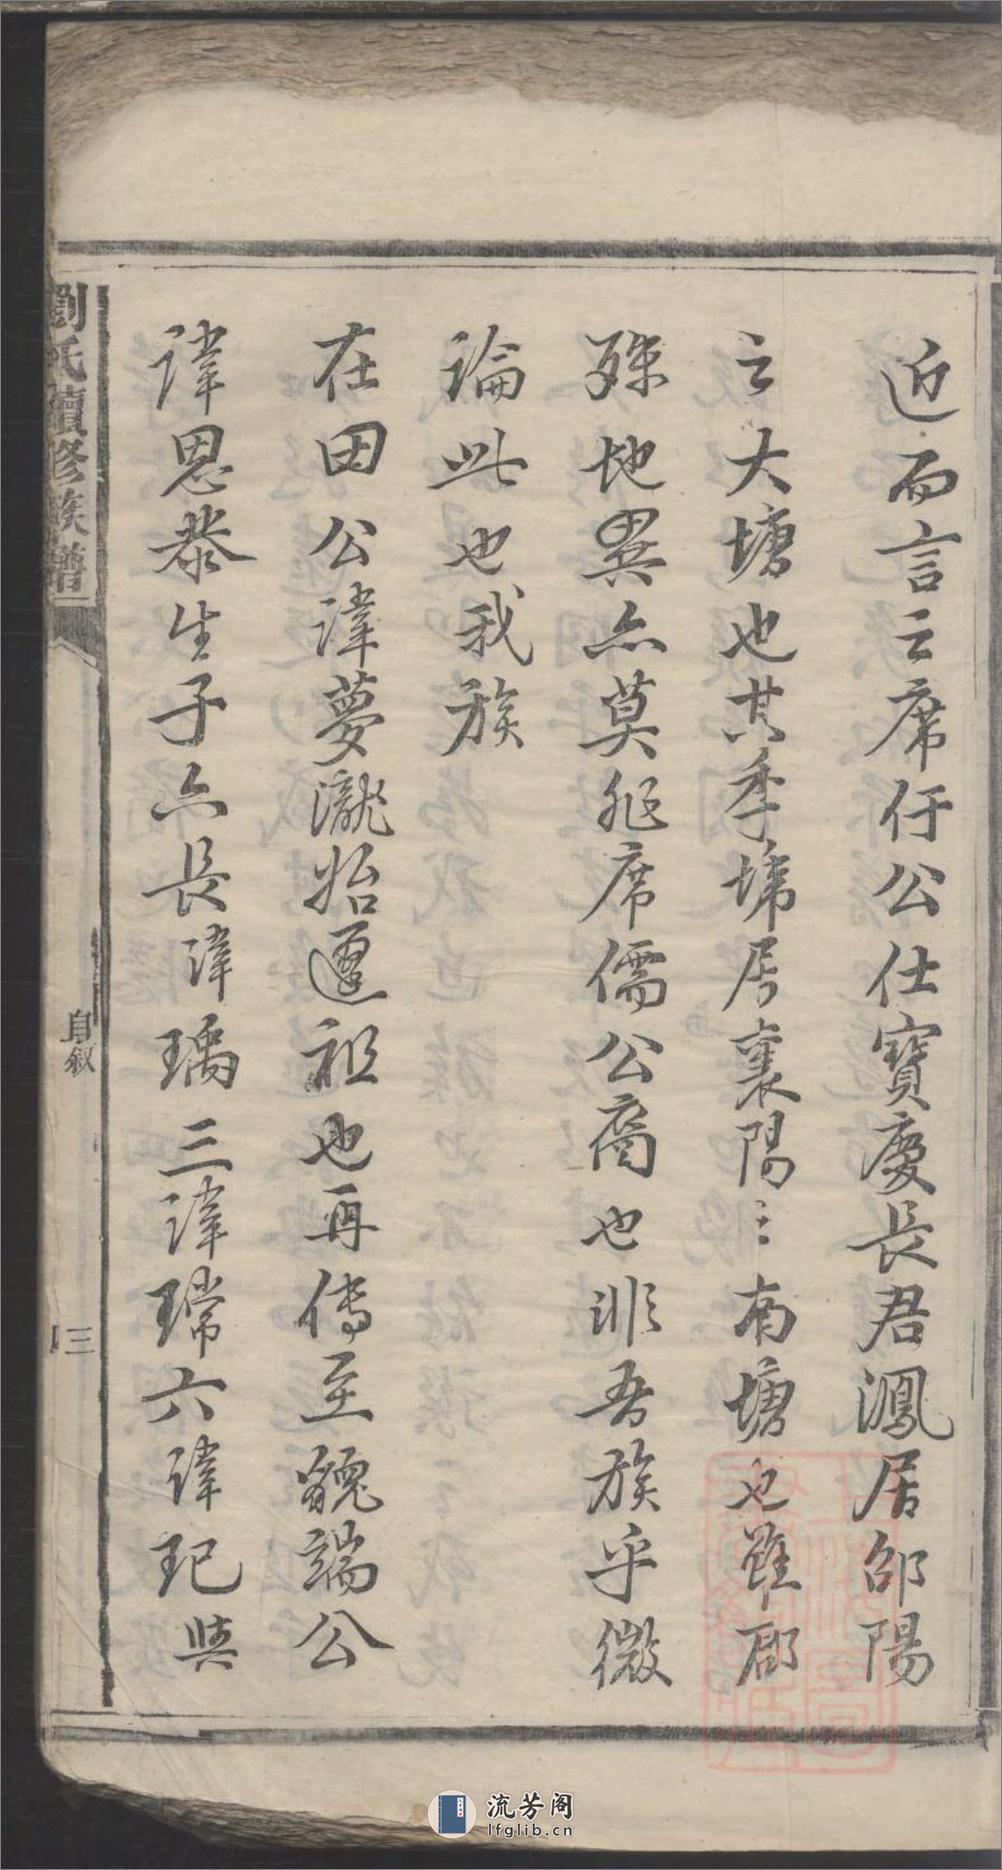 近而言云席伃公仕寶慶長君鳳居邵陽
云大塘也其季埽居襄陽〻南塘也雖郡
殊地異亦莫非席儒公裔也非吾族乎微
論此也我族
在田公諱夢瀧始遷祖也再傳至毓端公
諱恩恭生子六長諱瑀三諱璫六諱玘與
劉氏續修族譜
自敘
三
流芳阁
lfglib.cn